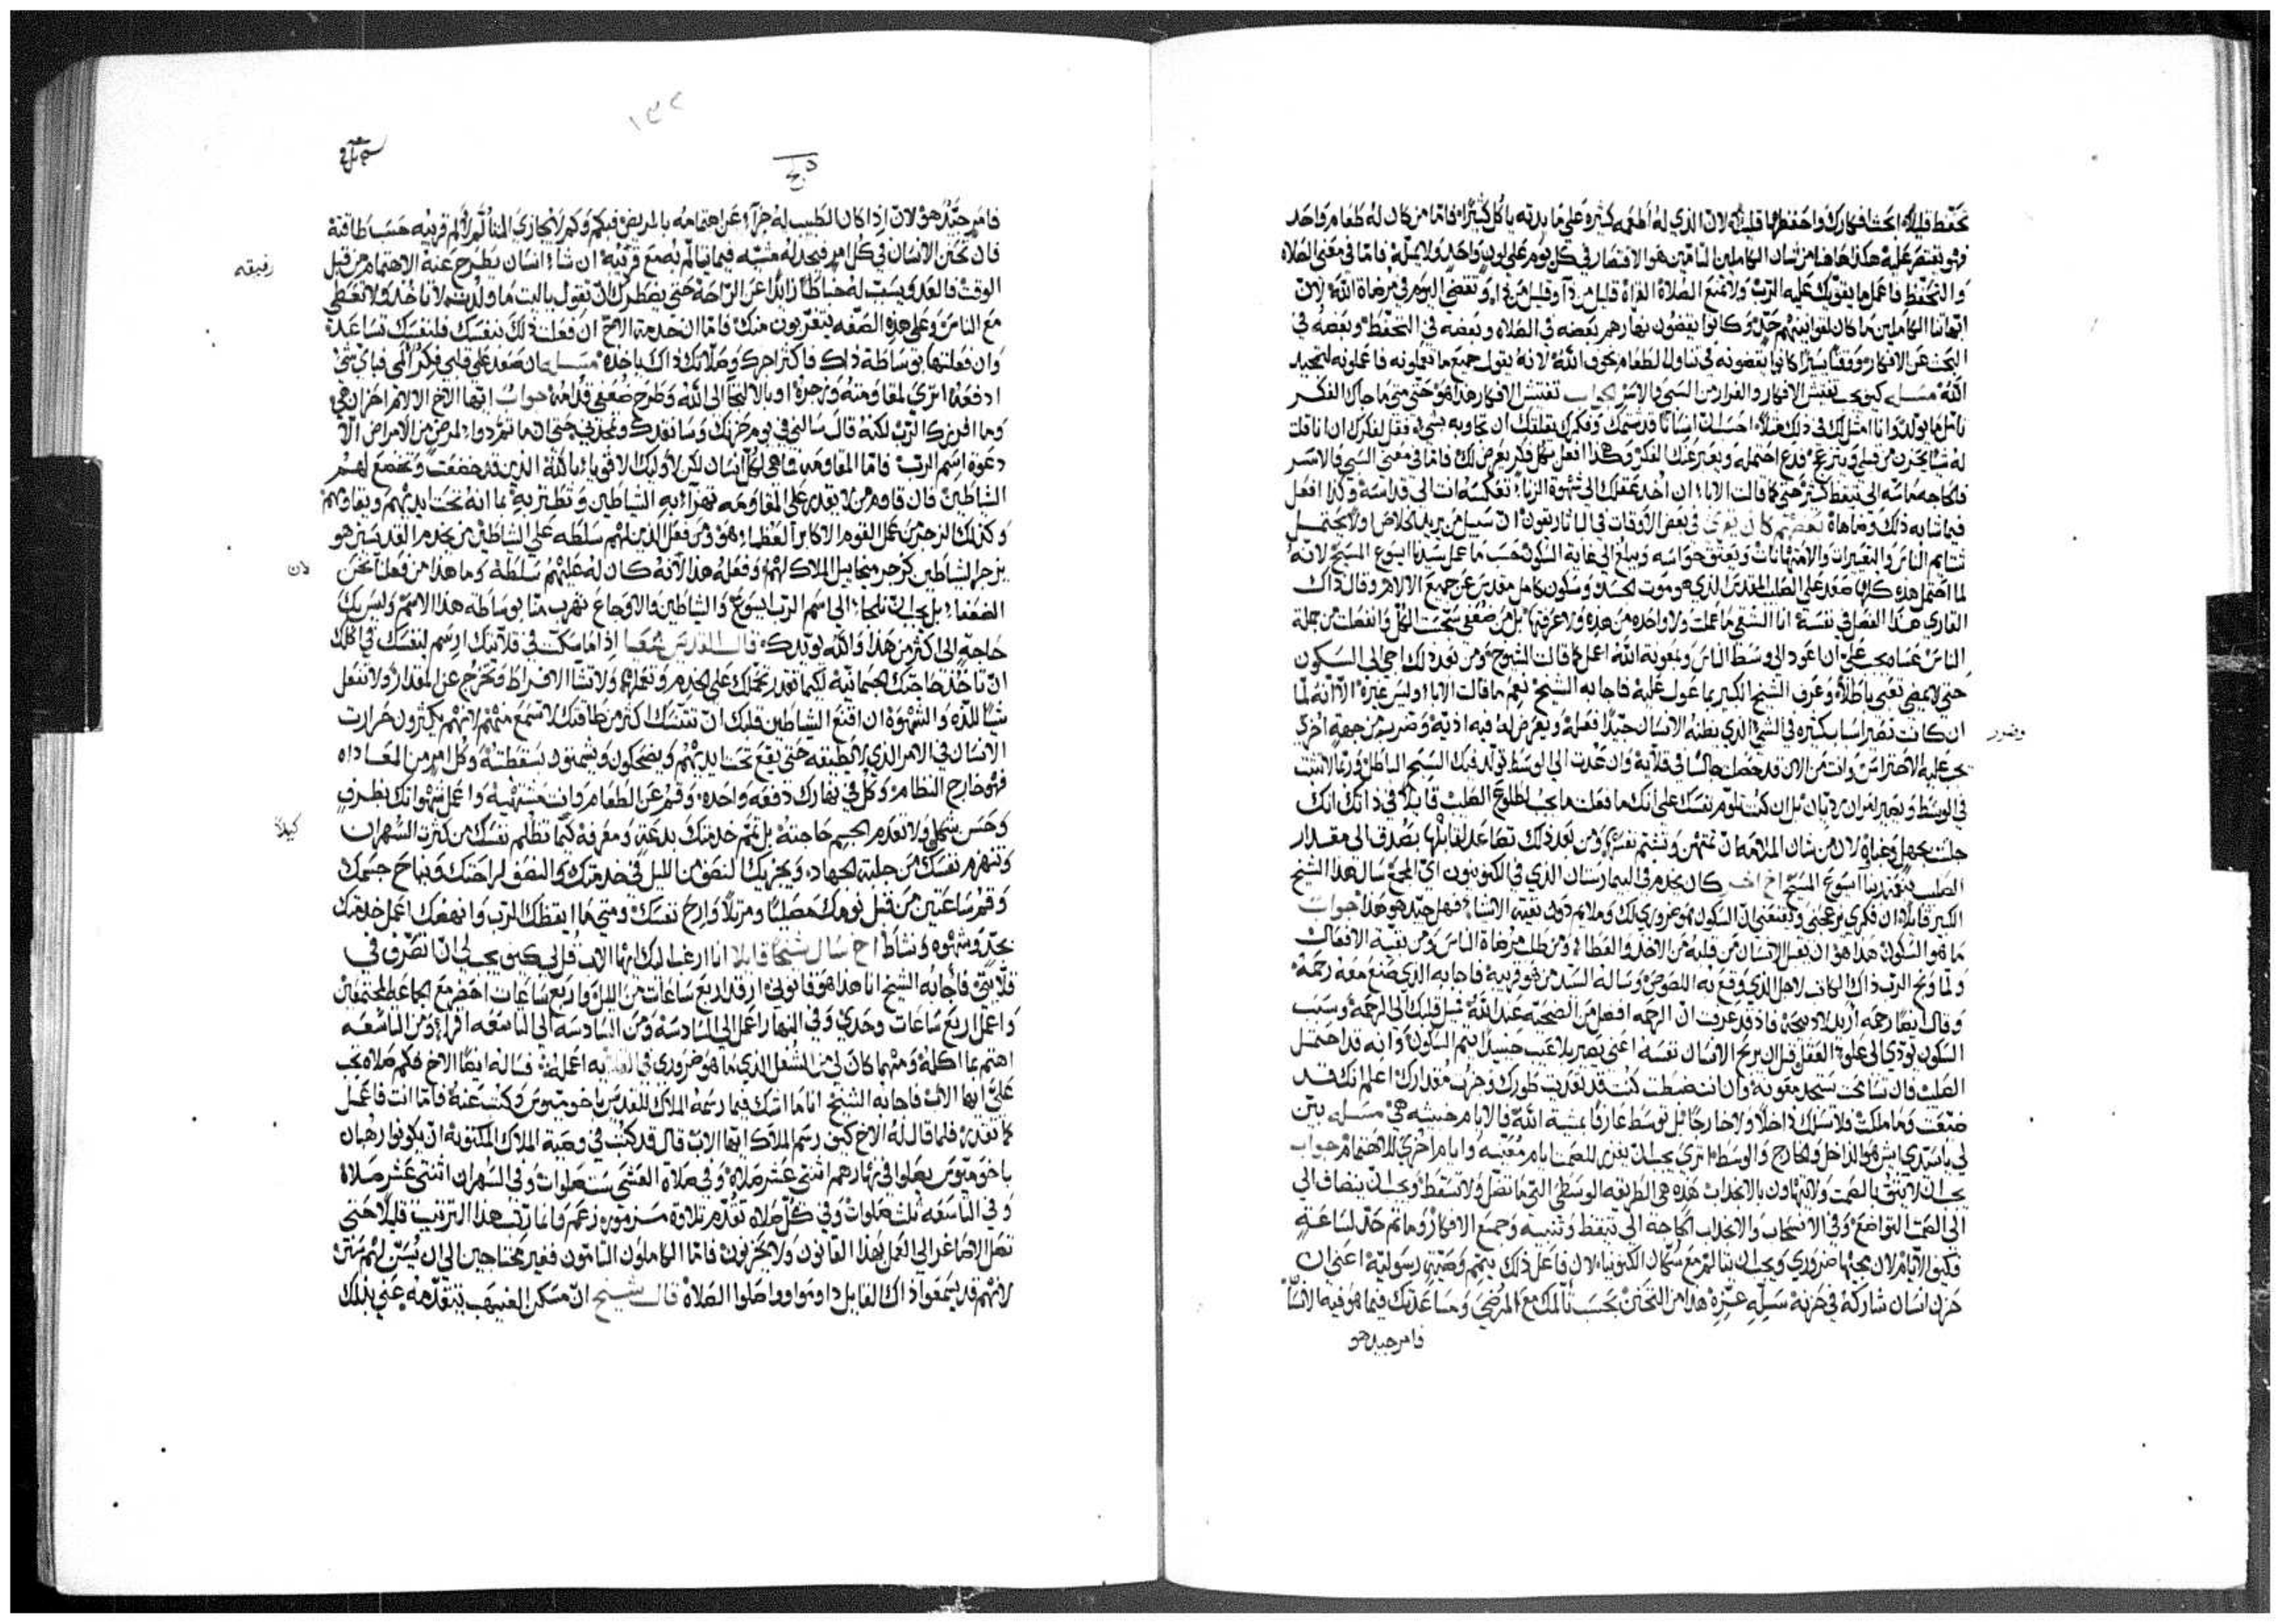 تحفظ قليلاً ابحث افكارك واحفظها قليلاً لان الذي له اطعمه كثيره على مايدته ياكل كثيراً فاما من كان له طعام واحد
فهو يقتصر عليه هكذا هاهنا من شان الكاملين التامين هو الاقتصار في كل يوم على لون واحد ولا يمله فاما في معنى الصلاه
والتحفظ فاعمل ما يقويك عليه الرب ولا تمنع الصلاة القراه قليل من ذا وقليل من ذا وتقضي اليوم في مرضاة الله لان
ابهاتنا الكاملين ما كان لقوانينهم حد وكانوا يقضون نهارهم بعضه في الصلاه وبعضه في التحفظ وبعضه في
البحث عن الافكار ووقتاً يسيراً كانوا يقضونه في تناول الطعام بخوف الله لانه يقول جميع ما تعملونه فاعملونه لتمجيد
الله مسله كيف يجب تفتيش الافكار والفرار من السبي بالاسر الجواب تفتيش الافكار هذا هو حتى متى ما جاك الفكر
تامل ما يولد وانا امثل لك في ذلك مثلاً احسب ان انساناً قد شتمك وفكرك يقلقك ان تجاوبه بشي فقل لفكرك ان انا قلت
له شياً يحزن من قبلي وينزعج فدع احتمله ويعبر عنك الفكر وهكذا افعل بكل فكر يعرض لك فاما في معنى السبي والاسر
فالحاجه ماسه الى تيقظ كثير حتى كما قالت الابا ان اخذ عقلك الى شهوة الزنا تعكسه انت الى قداسة وكذا افعل
فيما شابه ذلك وضاهاه
تشايم الناس والتعييرات والامتهانات ويعتق حواسه ويبلغ الى غاية السكون حسب ما عمل سيدنا ايسوع المسيح لانه
لما احتمل هذه كلها صعد على الصلب المقدس الذي هو موت الجسد وسكون كامل مقدس عن جميع الالام وقال ذاك
القاري هذا الفصل في نفسه انا الشقي ما عملت ولا واحده من هذه ولا عرفتها بل من ضعفي سيبت الكل وانفصلت من جملة
الناس عسا يجب علي ان اعود الى وسط الناس وبمعونة الله اعمل كما قالت الشيوخ ومن بعد ذلك اجي الى السكون
حتى لا يمضي تعبي باطلاً وعرف الشيخ الكبير بما عول عليه فاجابه الشيخ نعم ما قالت الابا وليس غيره الا انه لما
ان كانت تصير اسباب كثيره في الشي الذي يظنه الانسان جيداً فعله ويعرض له فيه اذية وضرب من جهه اخرى
يجب عليه الاحتراس وانت من الان قد حصلت جالساً في قلاية وان عدت الى الوسط تولد فيك السبح الباطل وربما لا تثبت
في الوسط ويصير امران رديان بل ان كنت تلوم نفسك على انك ما فعلت ما يجب لطلوع الصلب قايلاً في ذاتك انك
جلست بجهل وغباوه لان من شان الملامه ان تمتهن وتشتم نفسك ومن بعد ذلك تصاعد لقايلها بصدق الى مقدار
الصلب بنعمة ربنا ايسوع المسيح اخ اخر كان يخدم في البيمارستان الذي في الكنوبيون اي المجمع سال هذا الشيخ
الكبير قايلاً ان فكري يزعجني ويقنعني ان السكون هو ضروري لك وملايم دون بقية الاشيا فهل جيد هو هذا جواب
ما هو السكون هذا هو ان يقبل الانسان من قلبه من الاخذ والعطا ومن طلب مرضاة الناس ومن بقية الافعال
ولما وبخ الرب ذاك الكاتب لاجل الذي وقع به اللصوص وساله السيد من هو قريبه فاجابه الذي صنع معه رحمة
وقال ايضاً رحمه اريد لا ذبيحة فاذ قد عرفت ان الرحمه افضل من الضحيه عند الله فميل قلبك الى الرحمة وسبب
السكون يودي الى علو العقل قبل ان يربح الانسان نفسه اعني يصير بلا عيب حينيذٍ يتم السكون وانه قد احتمل
الصلب فان تسامحت ستجد معونة وان انت ضبطت كنت قد تعديت طورك وحزت مقدارك اعلم انك قد
ضيعت وما ملكت ولا تسلك داخلاً ولا خارجاً بل توسط عارفاً بمشية الله فالايام خبيثه هي مسله بين
لي يا سيدي ايش هو الداخل والخارج والوسط اترى يجب ان يفرز للصمت ايام معينة وايام اخرى للاهتمام جواب
يجب ان لا يتق بالصمت ولا يتهاون بالانجذاب هذه هي الطريقه الوسطى التي ما تضل ولا تسقط ويجب ان ينضاف الى
الى الصمت التواضع وفي الانسحاب والانجذاب الحاجة الى تيقظ وتنبيه وجميع الافكار وما تم حد لساعةٍ
فكيف الايام لان مجيها ضروري ويجب ان تتالم مع سكان الكنوبيا لان فاعل ذلك يتمم وصيةً رسولية اعني ان
حزن انسان شاركه في حزنه سليه عزيه هذا من التحنن بحسب تالمك مع المرضى ومساعدتك فيما هو فيه الانسان
فامر جيد هو
وضرر
فامر جيد هو لان اذا كان الطبيب له جزاءً عن اهتمامه بالمريض فبكم وكم لا يجازى المتالم لالم قريبه حسب طاقته
فان تحنن الانسان في كل امرٍ فيجد له مشيه فيما تالم به مع قريبه ان شا انسان يطرح عنه الاهتمام من قبل
رفيقه
الوقت فالعدو يسبب له خباطاً زايداً عن الراحة حتى يضطرك ان تقول ياليت ما ولدت لا تاخذ ولا تعطي
مع الناس وعلى هذه الصفه يتغربون منك فاما ان خدمة الاخ ان فعلت ذلك بنفسك فلنفسك تساعد
وان فعلتها بوساطة ذاك فاكثر اجرك وصلاتك ذاك ياخذه مسله ان صعد على قلبي فكر المي فباي شي
ادفعه اترى لمقاومته وزجره او بالالتجا الى الله وطرح ضعفي قدامه جواب ايها الاخ الالام احزان هي
وما افرزها الرب لكنه قال سالني في يوم حزنك وسانقذك وتمجدني حتى ان ما تم دوا لمرض من الامراض الا
دعوة اسم الرب فاما المقاومه فما هي لكل انسان لكن لاوليك الاقويا بالله الذين قد خضعت وتخضع لهم
الشياطين فان قاوم من لا يقدر على المقاومه تهزا به الشياطين وتطنز به بما انه تحت ايديهم ويقاومهم
وكذلك الزجر من عمل القوم الاكابر العظما هو ومن فعل الذين لهم سلطه على الشياطين من يخدم القديسين هو
يزجر الشياطين كزجر ميخاييل الملاك لهم وفعله هذا لانه كان له عليهم سلطة وما هذا من فعلنا نحن
لان
الضعفا بل يجب ان نلتجا الى اسم الرب ايسوع والشياطين والاوجاع تهرب منا بوساطة هذا الاسم وليس بك
حاجةٍ الى اكثر من هذا والله يويدك قال القديس شعيا اذا ما سكنت في قلايتك ارسم لنفسك في اكلك
ان تاخذ حاجتك الجسمانية لكيما تقدر تحملك على الخدم وتعملها ولا تشا الافراط وتخرج عن المقدار ولا تفعل
شياً للذه والشهوة ان اقنع الشياطين قلبك ان تنسك اكثر من طاقتك لا تسمع منهم لانهم يكثرون حزازت
الانسان في الامر الذي لا يطيقه حتى يقع تحت ايديهم ويضحكون ويشمتون بسقطته وكل امرٍ من المعاداه
فهو خارج النظام وكل في نهارك دفعه واحده وقم عن الطعام وانت مشتهيه واعمل شهواتك بظرفٍ
وحسن شكل ولا تعدم الجسم حاجته بل تمم خدمتك بدعةٍ ومعرفه كيما تظلم نفسك من كثرت السهران
كيلا
وتنهزم نفسك من حلبة الجهاد ويجزيك النصف من الليل في خدمتك والنصف لراحتك ونياح جسمك
وقم ساعتين من قبل نومك مصلياً ومرتلاً وارح نفسك ومتى ما ايقظك الرب وانهضك اعمل خدمتك
بجد وشهوه ونشاط اخ سال شيخاً قايلاً انا ارغب اليك ايها الاب قل لي كيف يجب لي ان اتصرف في
قلايتي فاجابه الشيخ انا هذا هو قانوني ارقد اربع ساعات من الليل واربع ساعات احضر مع الجماعه المجتمعين
واعمل اربع ساعات وحدي وفي النهار اعمل الى السادسة ومن السادسه الى التاسعه اقرا ومن التاسعه
اهتم بما اكله ومهما كان لي من الشغل الذي ما هو ضروري في القلايه اعمله فساله ايضاً الاخ فكم صلاه تجب
علي ايها الاب فاجابه الشيخ انا ماسك فيما رسمه الملاك للقديس باخوميوس وكتب عنه فاما انت فاعمل
كما تقدر فلما قال له الاخ كيف رسم الملاك ايها الاب قال قد كتب في وصية الملاك المكتوبة ان يكونوا رهبان
باخوميوس يصلوا في نهارهم اثنتي عشر صلاه وفي صلاة العشي ست صلوات وفي السهران اثنتي عشر صلاه
وفي التاسعه ثلث صلوات وفي كل صلاه تقدم تلاوة مزموره زعم وانما رتب هذا الترتيب قليلاً حتى
تصل الاصاغر الى العمل بهذا القانون ولا يحزنون فاما الكاملون التامون فغير محتاجين الى ان يسن لهم سنن
لانهم قد يسمعوا ذاك القايل داوموا وواصلوا الصلاه قال شيخ ان مسكن الغيهب يتقدمه عني بذلك